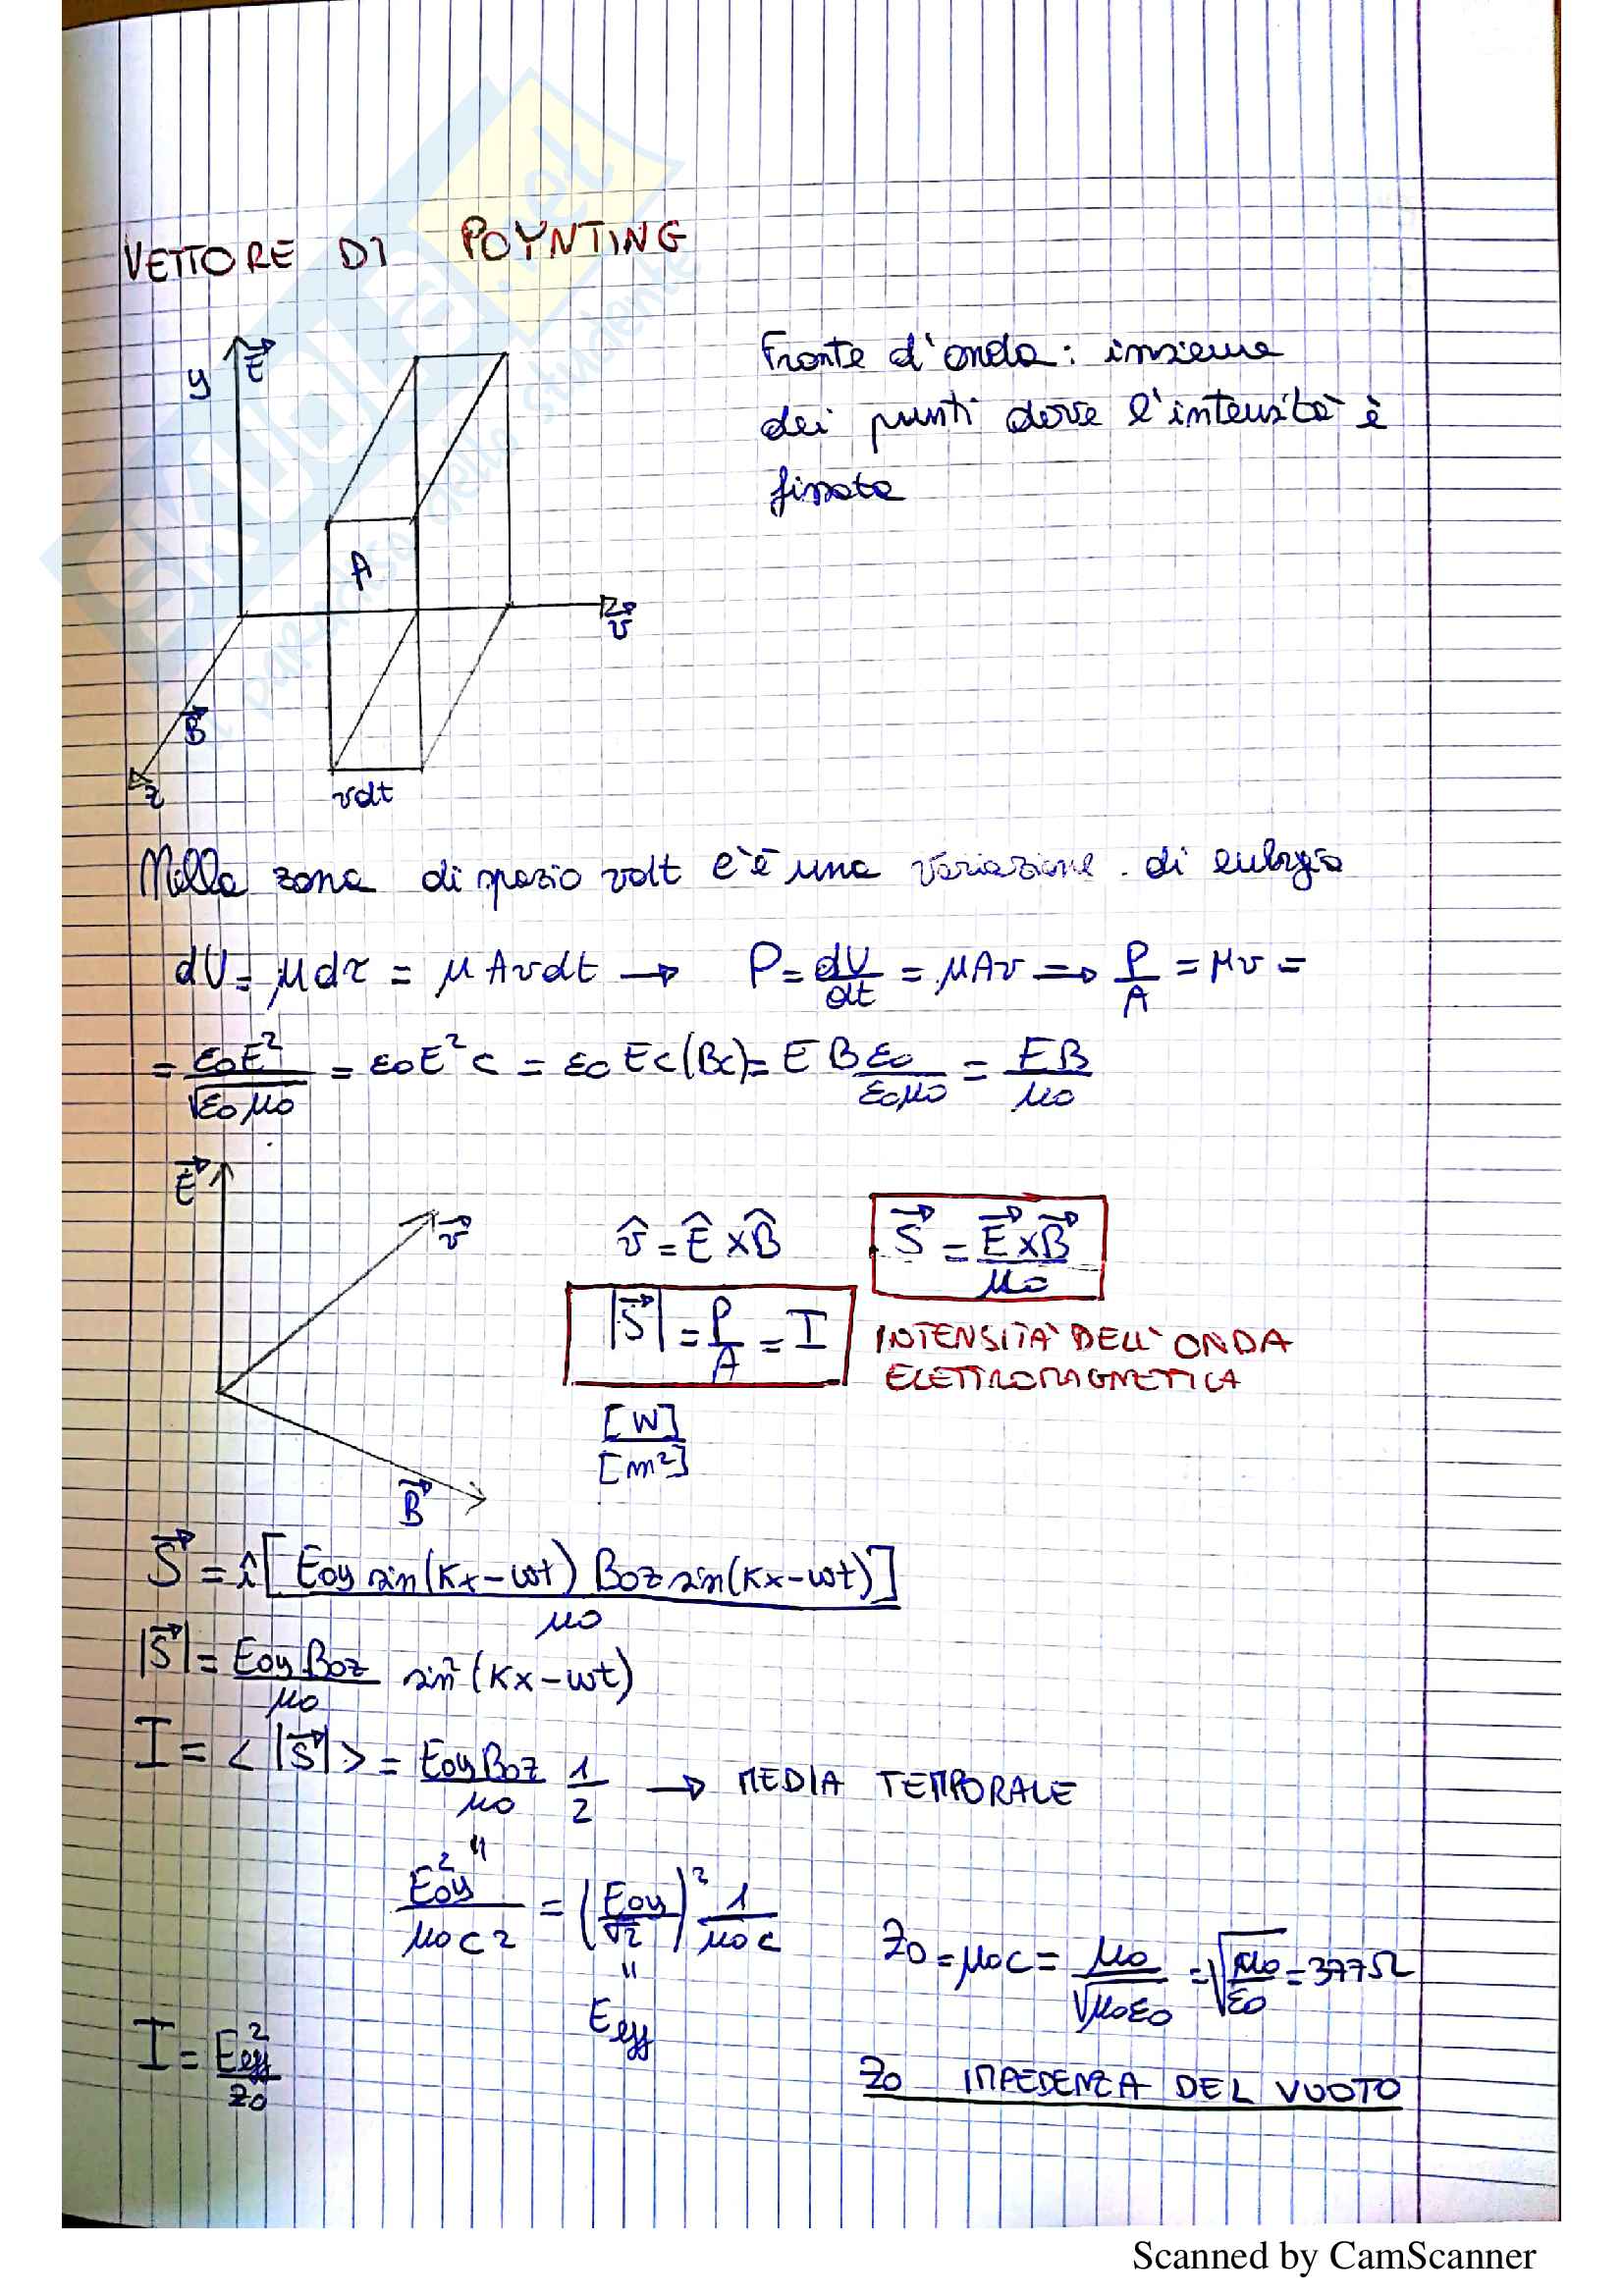 VETTORE DI POYNTING
y E⃗
Fronte d'onda: insieme
dei punti dove l'intensità è
fissata
A
v⃗
B⃗
z
vdt
Nella zona di spazio vdt c'è una variazione di energia
dU = μdτ = μAvdt → P = dU/dt = μAv ⇒ P/A = μv =
= ε0E²/√(ε0μ0) = ε0E²c = ε0Ec(Bc) = EBε0/(ε0μ0) = EB/μ0
E⃗
v⃗
B⃗
v̂ = Ê × B̂
S⃗ = E⃗×B⃗/μ0
|S⃗| = P/A = I INTENSITÀ DELL'ONDA
ELETTROMAGNETICA
[W]/[m²]
S⃗ = î[E0y sin(Kx-ωt) B0z sin(Kx-ωt)]/μ0
|S⃗| = E0yB0z/μ0 sin²(Kx-ωt)
I = <|S⃗|> = E0yB0z/μ0 1/2 → MEDIA TEMPORALE
"
E0y²/(μ0c2) = (E0y/√2)² 1/(μ0c)
Z0 = μ0c = μ0/√(μ0ε0) = √(μ0/ε0) = 377Ω
"
Eeff
I = Eeff²/Z0
Z0 IMPEDENZA DEL VUOTO
Scanned by CamScanner